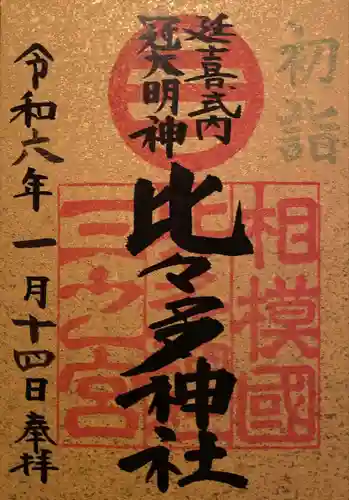 初詣
延喜式内
冠大明神
比々多神社
相模國
三之宮
令和六年一月十四日奉拝